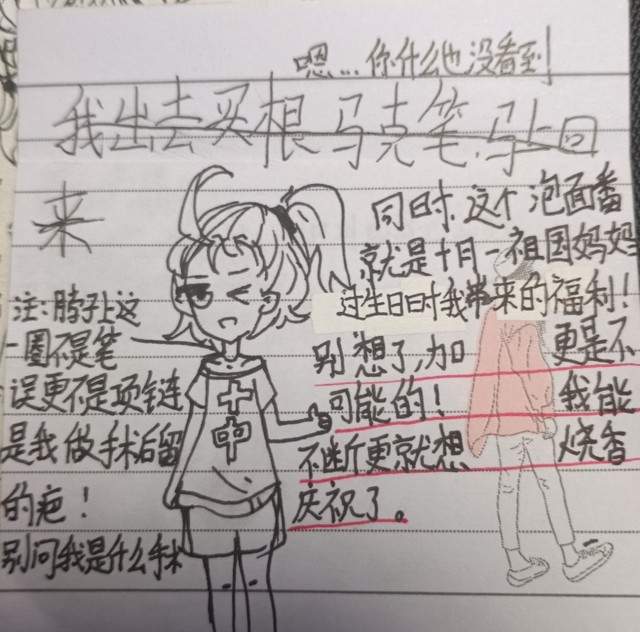 嗯...你什么也没看到
我出去买根马克笔,马上回
来
同时,这个泡面番
就是十月一祖国妈妈
过生日时我带来的福利!
别想了,加更是不
可能的!我能
不断更就想烧香
庆祝了。
注:脖子上这
一圈不是笔
误更不是项链
是我做手术后留
的疤!
别问我是什么手术
中